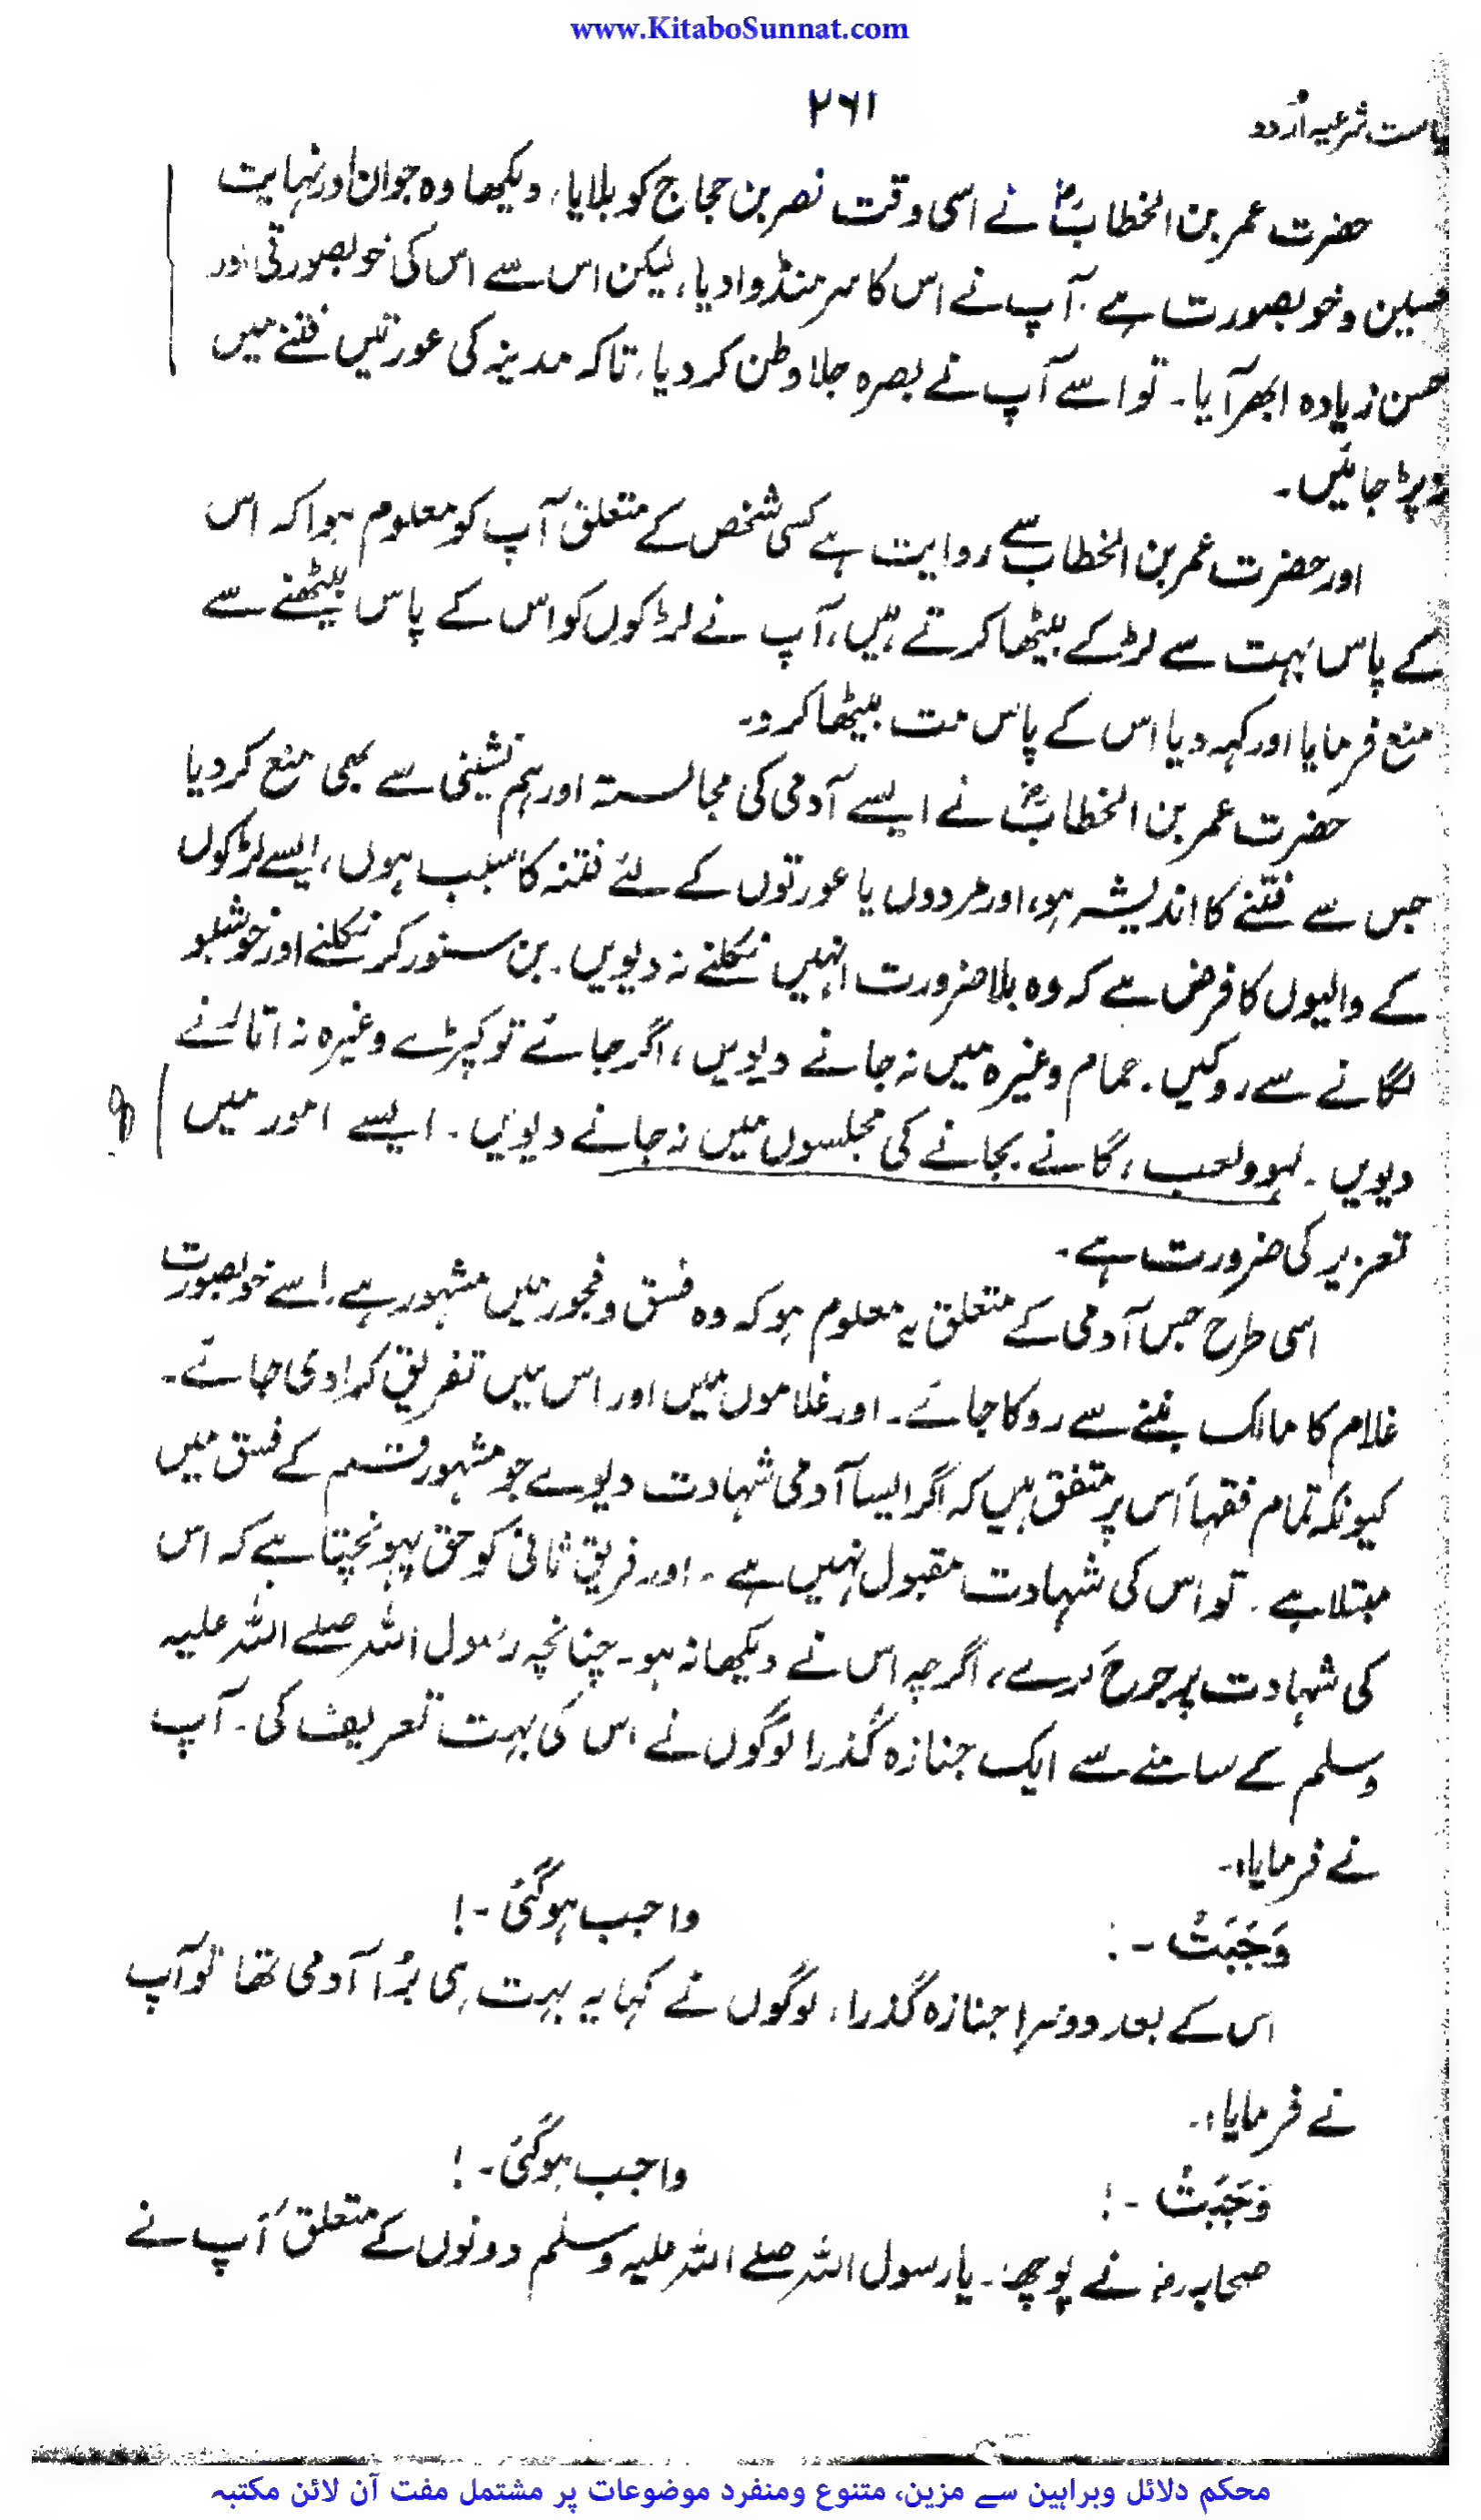 www.KitaboSunnat.com
۲۶۱
سیاست شرعیہ اُردو
حضرت عمر بن الخطابؓ نے اسی وقت نصر بن حجاج کو بلایا، دیکھا وہ جوان اور نہایت
حسین و خوبصورت ہے، آپ نے اس کا سر منڈوا دیا، لیکن اس سے اس کی خوبصورتی اور
حسن زیادہ ابھر آیا۔ تو اسے آپ نے بصرہ جلا وطن کر دیا، تاکہ مدینہ کی عورتیں فتنے میں
نہ پڑ جائیں۔
اور حضرت عمر بن الخطاب سے روایت ہے کسی شخص کے متعلق آپ کو معلوم ہوا کہ اس
کے پاس بہت سے لڑکے بیٹھا کرتے ہیں، آپ نے لڑکوں کو اس کے پاس بیٹھنے سے
منع فرمایا اور کہہ دیا اس کے پاس مت بیٹھا کرو۔
حضرت عمر بن الخطابؓ نے ایسے آدمی کی مجالستہ اور ہم نشینی سے بھی منع کر دیا
جس سے فتنے کا اندیشہ ہو، اور مردوں یا عورتوں کے لئے فتنہ کا سبب ہوں، ایسے لڑکوں
کے والیوں کا فرض ہے کہ وہ بلا ضرورت انہیں نکلنے نہ دیویں۔ بن سنور کر نکلنے اور خوشبو
لگانے سے روکیں۔ حمام وغیرہ میں نہ جانے دیویں، اگر جائے تو کپڑے وغیرہ نہ اتارنے
دیویں۔ لہو ولعب، گانے بجانے کی مجلسوں میں نہ جانے دیویں۔ ایسے امور میں
تعزیر کی ضرورت ہے۔
اسی طرح جس آدمی کے متعلق یہ معلوم ہو کہ وہ فسق و فجور میں مشہور ہے، اسے خوبصورت
غلام کا مالک بننے سے روکا جائے۔ اور غلاموں میں اور اس میں تفریق کرا دی جائے۔
کیونکہ تمام فقہا اس پر متفق ہیں کہ اگر ایسا آدمی شہادت دیوے جو مشہور قسم کے فسق میں
مبتلا ہے۔ تو اس کی شہادت مقبول نہیں ہے۔ اور فریق ثانی کو حق پہونچتا ہے کہ اس
کی شہادت پر جرح کرے، اگرچہ اس نے دیکھا نہ ہو۔ چنانچہ رسول اللہ صلے اللہ علیہ
وسلم کے سامنے سے ایک جنازہ گذرا لوگوں نے اس کی بہت تعریف کی۔ آپ
نے فرمایا،۔
وَجَبَتْ -: واجب ہوگئی -!
اس کے بعد دوسرا جنازہ گذرا، لوگوں نے کہا یہ بہت ہی بُرا آدمی تھا تو آپ
نے فرمایا،۔
وَجَبَتْ -! واجب ہوگئی -!
صحابہ رضہ نے پوچھا۔ یا رسول اللہ صلے اللہ علیہ وسلم دونوں کے متعلق آپ نے
محکم دلائل وبراہین سے مزین، متنوع ومنفرد موضوعات پر مشتمل مفت آن لائن مکتبہ